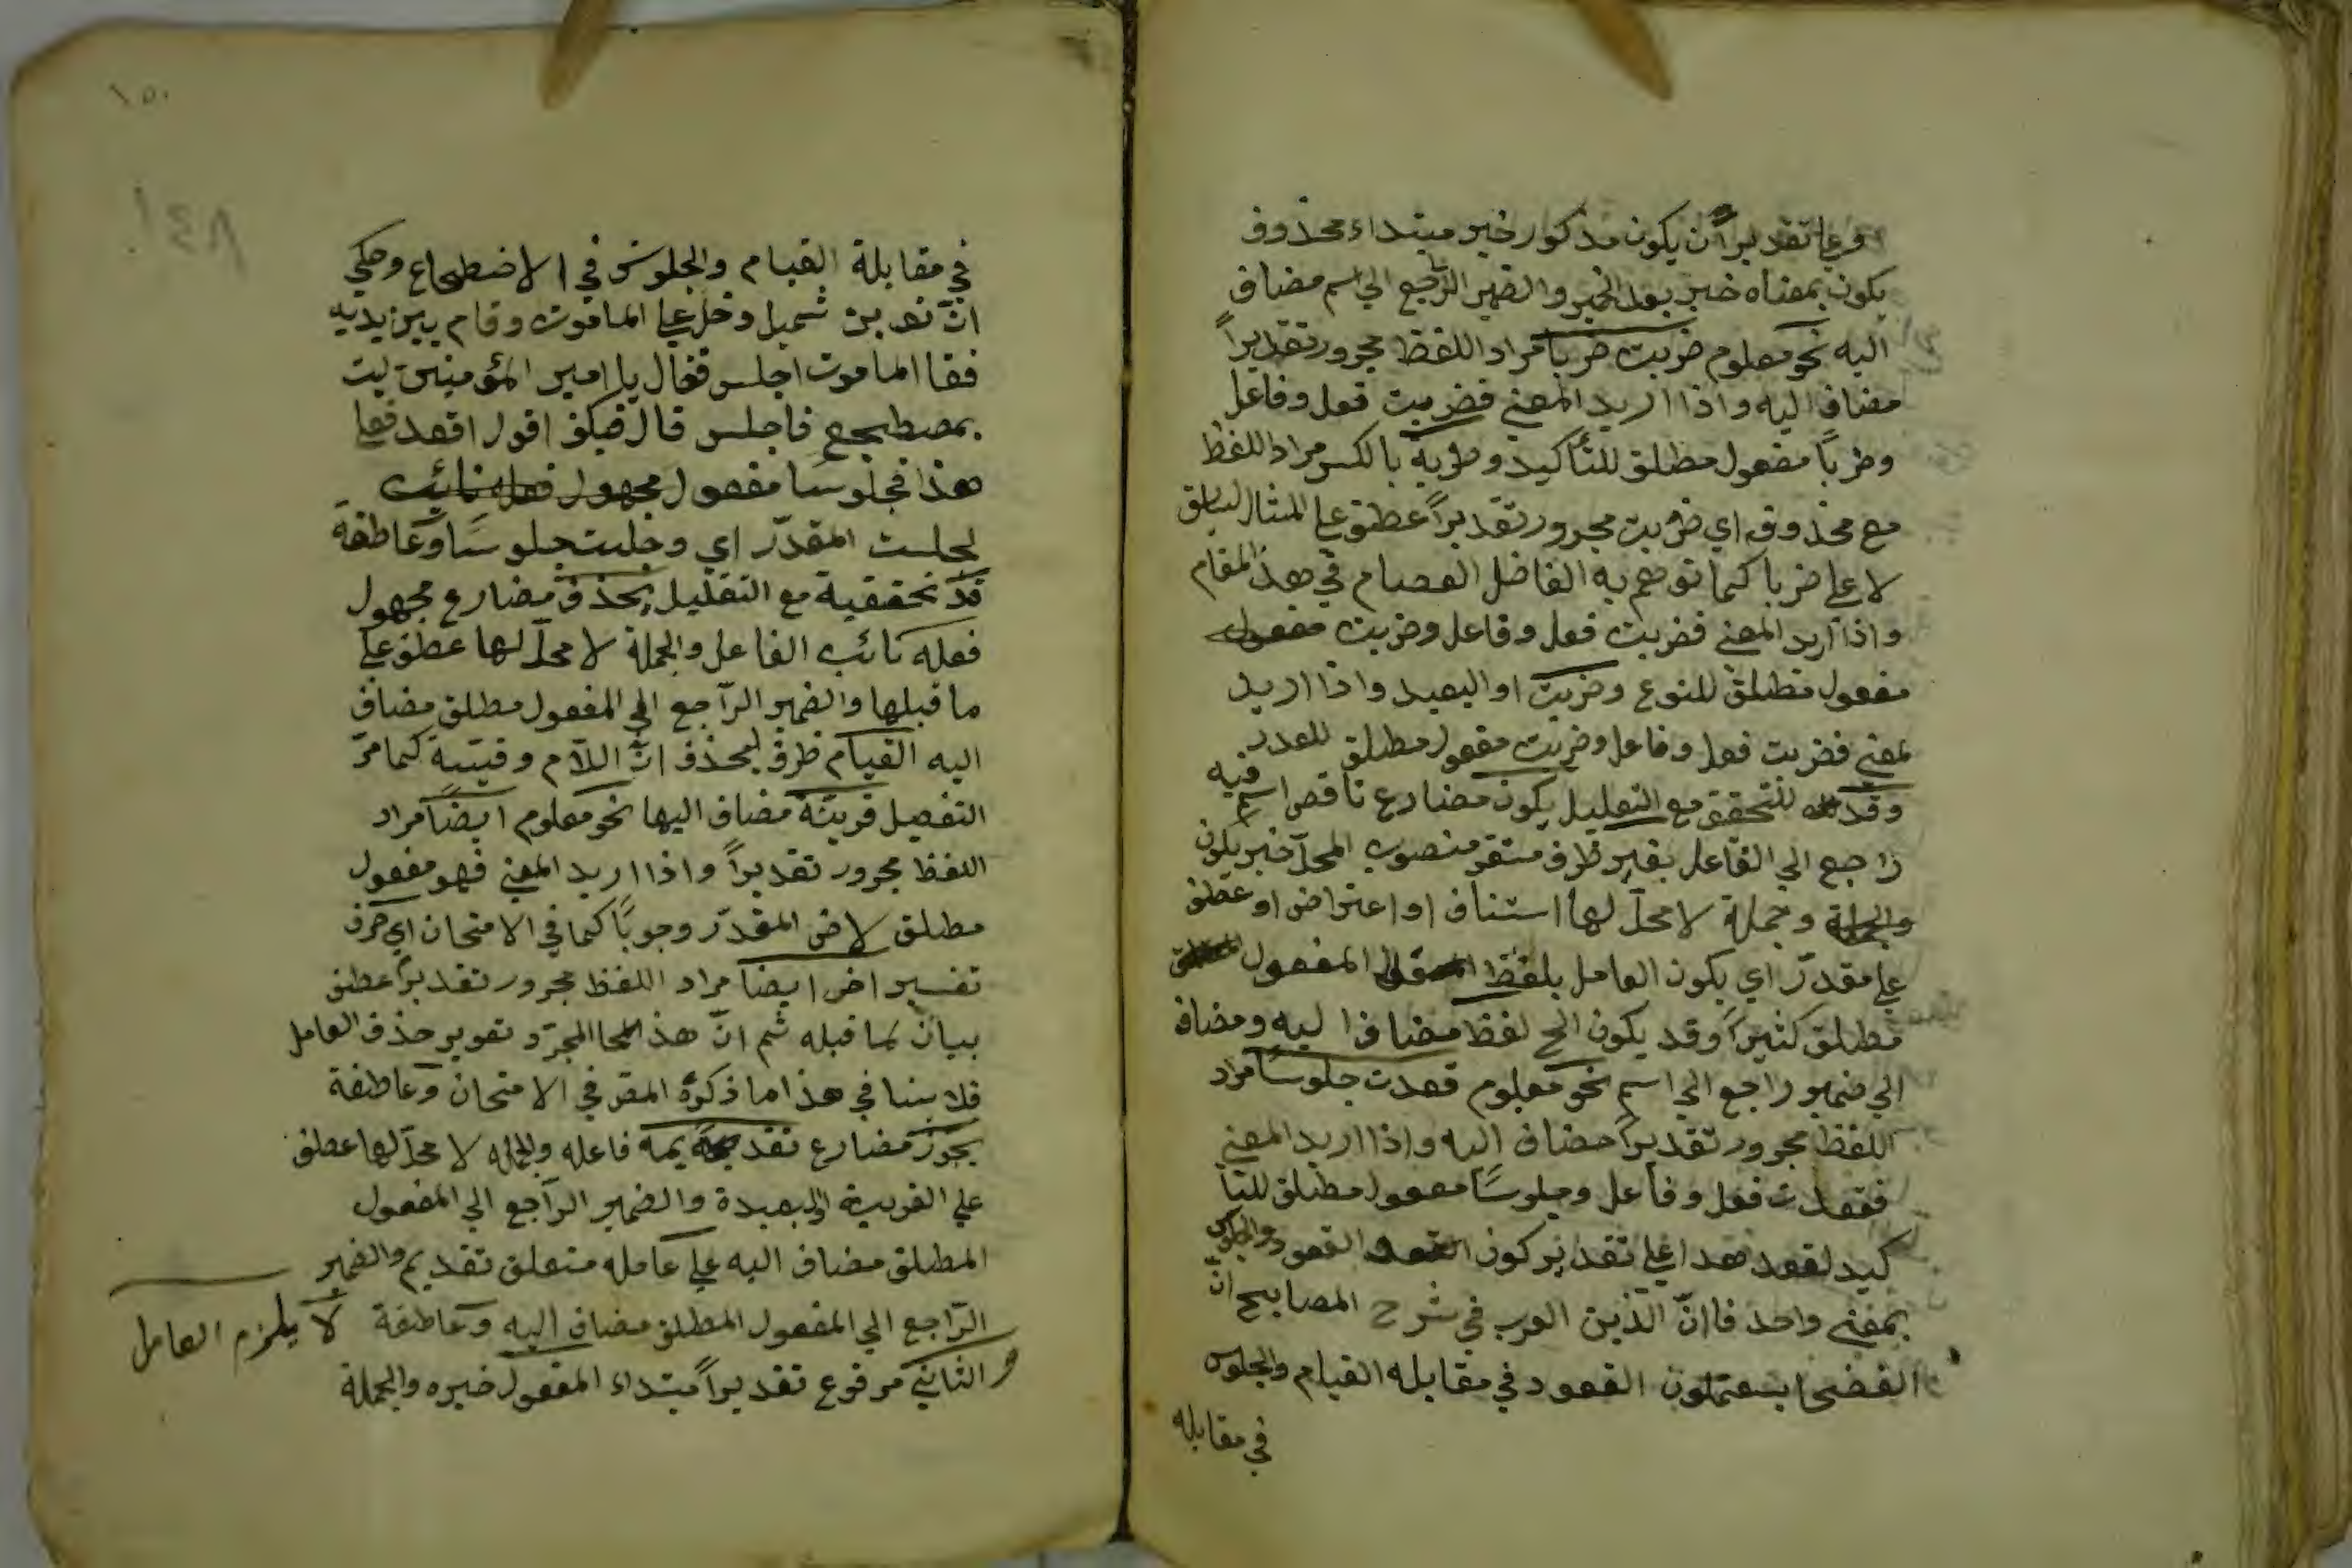 وعلى تقديرا ن يكون مذكور خبر مبتداء محذوف
يكون بمعناه خبر بعد الخبر والضمير الراجع الي اسم مضاف
اليه نحو معلوم ضربت ضربا مراد اللفظ مجرور تقديراً
مضاف اليه واذا اريد المعني فضربت فعل وفاعل
وضرباً مفعول مطلق للتأكيد وضربة بالكسر مراد اللفظ
مع محذوف اي ضربت مجرور تقديراً عطف علي المثال السابق
لا علي ضربا كما توهم به الفاضل العصام في هذ المقام
واذا اريد المعني فضربت فعل وفاعل وضربت مفعول
مفعول مطلق للنوع وضربت او البعيد واذا اريد
لمعني فضربت فعل وفاعل وضربت مفعول مطلق للعدد
وقد للتحقق مع التعليل يكون مضارع ناقص اسم فيه
راجع الي الفاعل بغير ظرف مستقر منصوب المحلّ خبر يكون
والجملة وجملة لا محلّ لها استناف او اعتراض او عطف
علي مقدّر اي يكون العامل بلفظ المفعول
مطلق كثيراً وقد يكون الح لفظ مضافا اليه ومضاف
الي ضمير راجع الي اسم نحو معلوم قعدت جلوساً مراد
اللفظ مجرور تقديراً مضاف اليه واذا اريد المعني
فقعدت فعل وفاعل وجلوسًا مفعول مطلق للتأ
كيد لقعد هدا علي تقدير كون القعود والجلوس
بمعني واحد فاانّ الذين العرب في شرح المصابيح انّ
الفضحا يستعملون القعود في مقابله القيام والجلوس
في مقابله
١٥٠
١٤٨
في مقابلة القيام والجلوس في الاضطجاع وحكي
انّ نصر بن شميل دخل علي المامون وقام بين يديه
فقا المامون اجلس فقال يا امير المؤمنين ليت
بمصطجع فاجلس قال فكيف اقول اقعد فعلي
هذا فجلوسًا مفعول مجهول فعله نائب
لجلست المقدّر اي وجلست جلوسًا وعاطفة
قد تحقيقية مع التقليل يحذف مضارع مجهول
فعله نائب الفاعل والجملة لا محلّ لها عطف علي
ما قبلها والضمير الرّاجع الي المفعول مطلق مضاف
اليه القيام ظرف ليحذف انّ اللاّم وقتيّة كما مرّ
التفصيل قرينة مضاف اليها نحو معلوم ايضاً مراد
اللفظ مجرور تقديراً واذا اريد المعني فهو مفعول
مطلق لاض المقدّر وجوبًا كما في الامتحان اي حرف
تفسير اض ايضا مراد اللفظ مجرور تقديراً عطف
بيان لما قبله ثم انّ هذ المجرّد تصوير حذف العامل
فلا ينافي هذا ما ذكره المص في الامتحان وعاطفة
يجوز مضارع تقديمه فاعله والجمله لا محلّ لها عطف
علي القريبة او البعيدة والضمير الرّاجع الي المفعول
المطلق مضاف اليه علي عامله متعلق تقديم والضمير
الرّاجع الي المفعول المطلق مضاف اليه وعاطفة لا يلزم العامل
والثاني مرفوع تقديراً مبتداء المفعول خبره والجملة